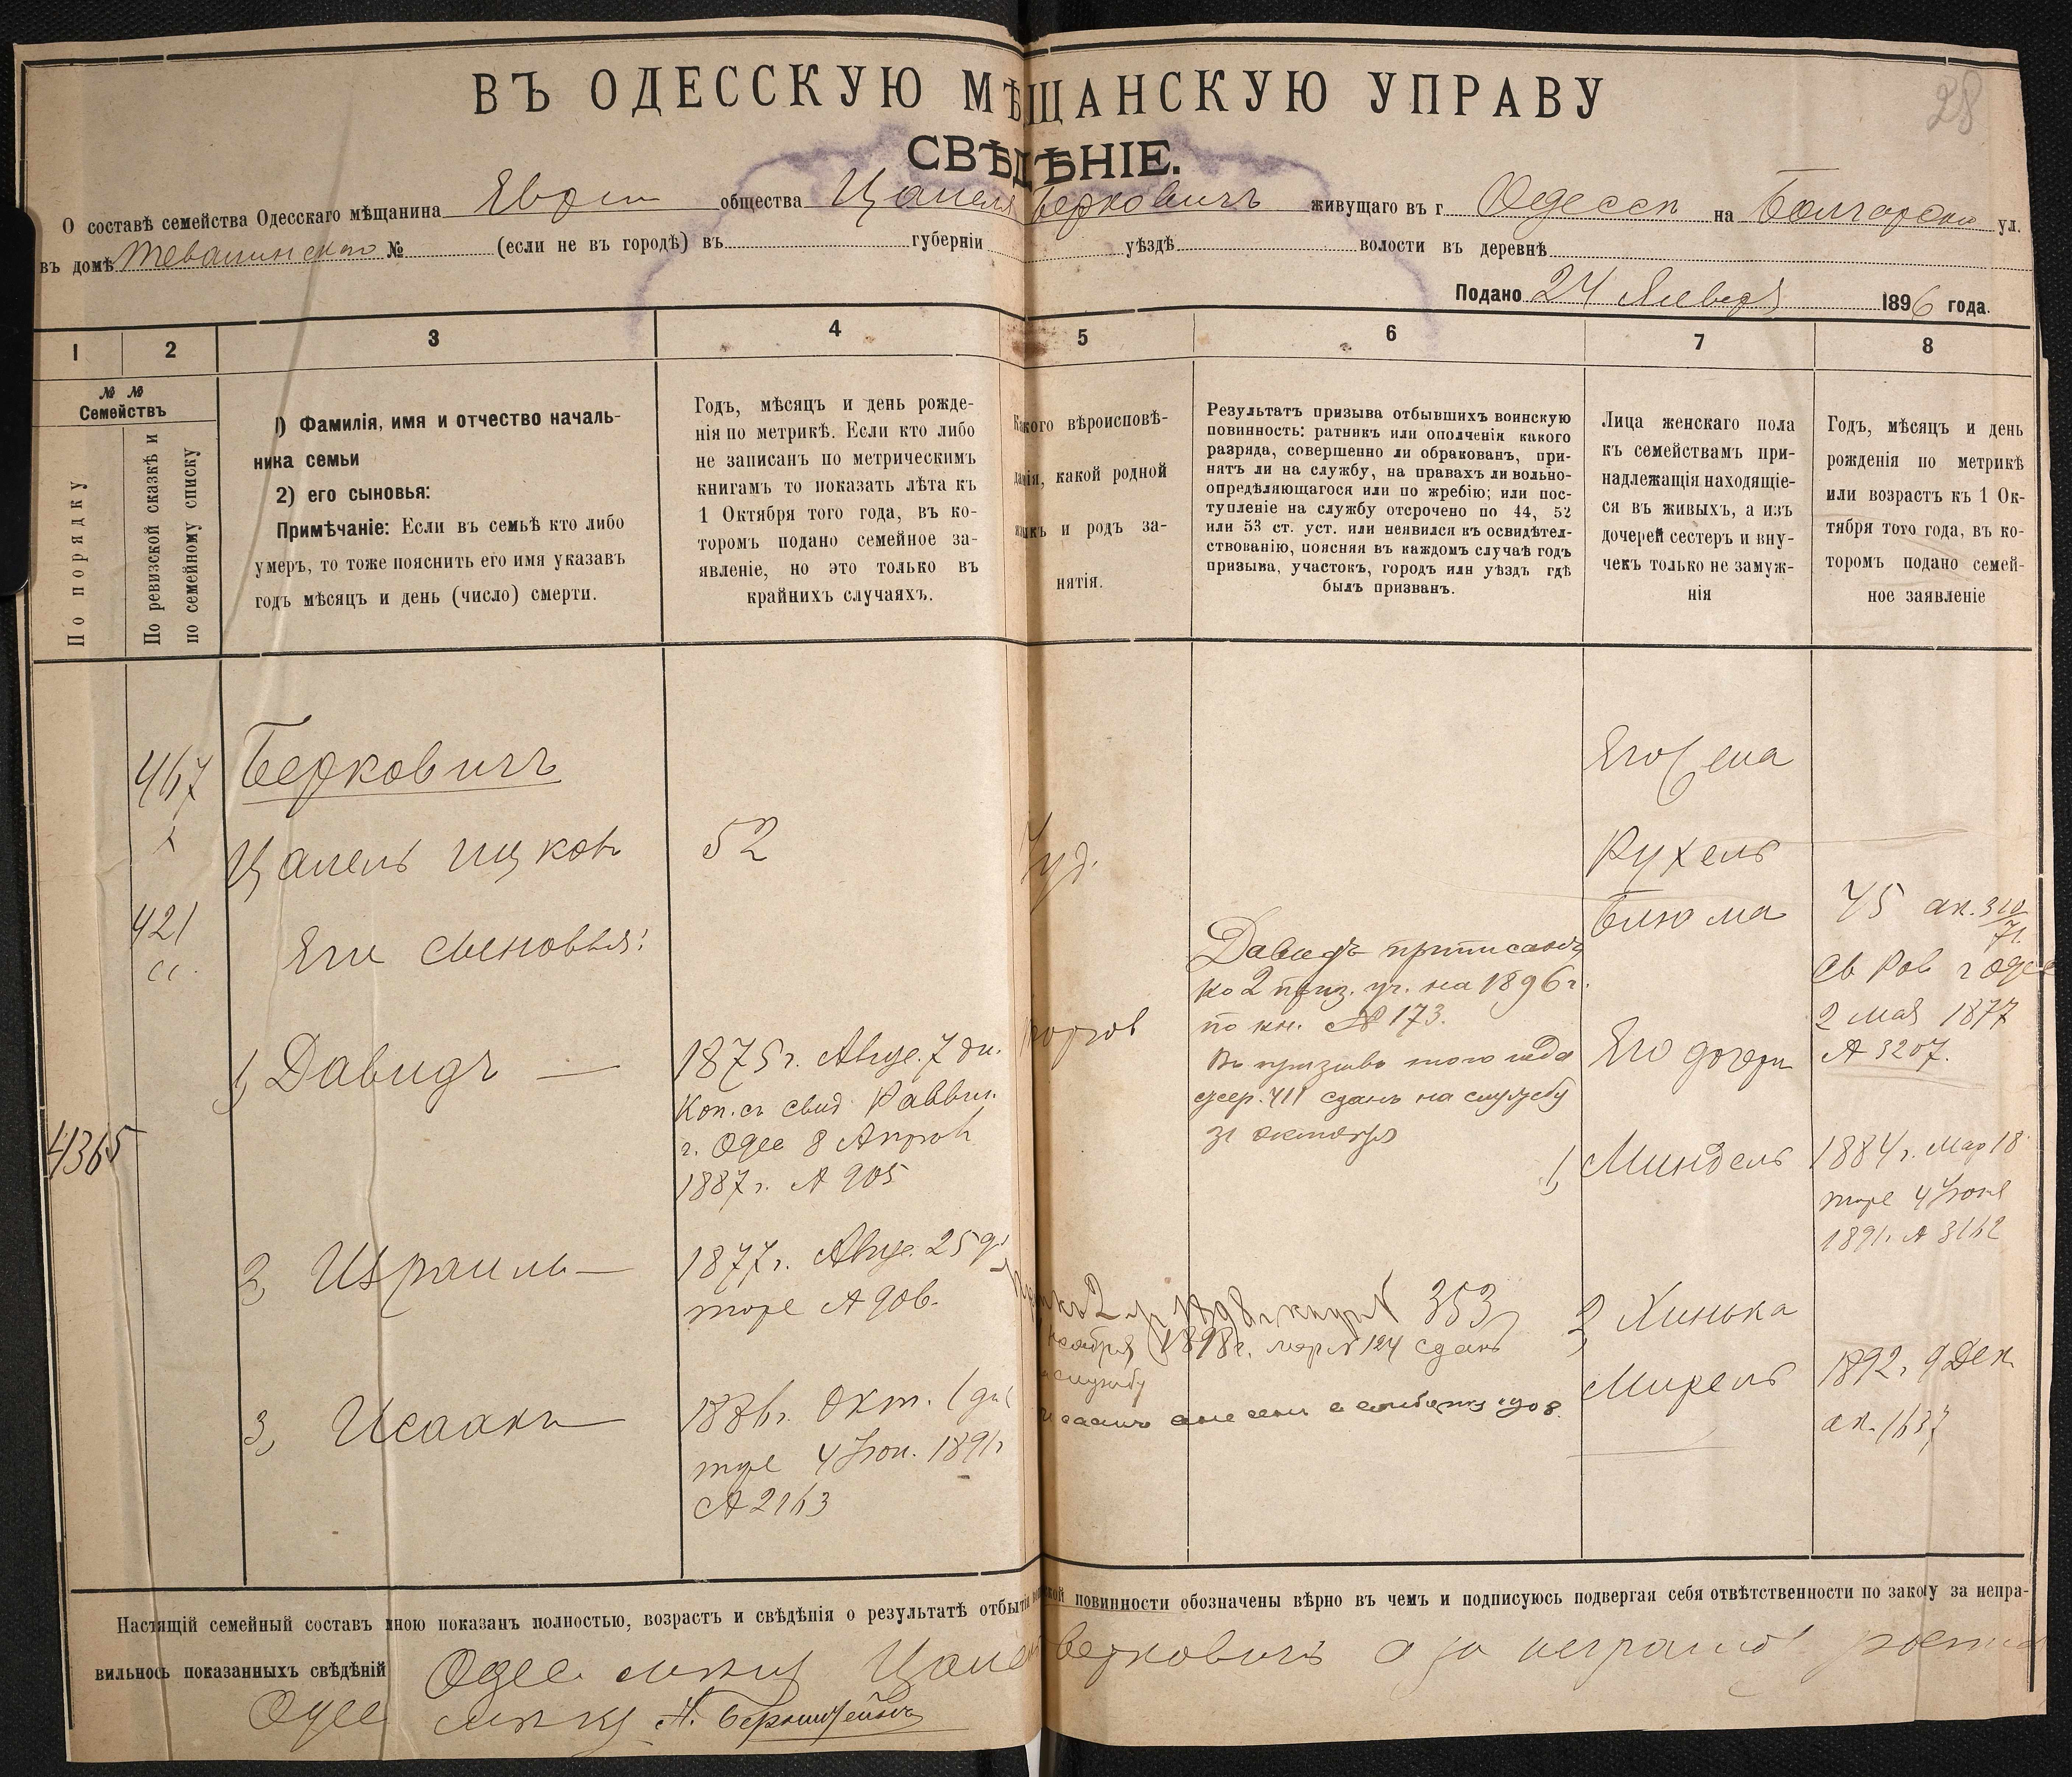 28
ВЪ ОДЕССКУЮ МѢЩАНСКУЮ УПРАВУ
СВѢДѢНІЕ.
О составѣ семейства Одесскаго мѣщанина общества Цапеля Берковичъ живущаго въ г. Одессѣ на Болгарской ул.
въ домѣ № (если не въ городѣ) въ губерніи уѣздѣ волости въ деревнѣ
Подано 24 Января 1896 года.
1 2 3 4 5 6 7 8
№ №
Семействъ
По порядку
По ревизской сказкѣ и
по семейному списку
1) Фамилія, имя и отчество началь-
ника семьи
2) его сыновья:
Примѣчаніе: Если въ семьѣ кто либо
умеръ, то тоже пояснить его имя указавъ
годъ мѣсяцъ и день (число) смерти.
Годъ, мѣсяцъ и день рожде-
нія по метрикѣ. Если кто либо
не записанъ по метрическимъ
книгамъ то показать лѣта къ
1 Октября того года, въ ко-
торомъ подано семейное за-
явленіе, но это только въ
крайнихъ случаяхъ.
Какого вѣроисповѣ-
данія, какой родной
языкъ и родъ за-
нятія.
Результатъ призыва отбывшихъ воинскую
повинность: ратникъ или ополченія какого
разряда, совершенно ли обракованъ, при-
нятъ ли на службу, на правахъ ли вольно-
опредѣляющагося или по жребію; или пос-
тупленіе на службу отсрочено по 44, 52
или 53 ст. уст. или неявился къ освидѣтел-
ствованію, поясняя въ каждомъ случаѣ годъ
призыва, участокъ, городъ или уѣздъ гдѣ
былъ призванъ.
Лица женскаго пола
къ семействамъ при-
надлежащія находящіе-
ся въ живыхъ, а изъ
дочерей сестеръ и вну-
чекъ только не замуж-
нія
Годъ, мѣсяцъ и день
рожденія по метрикѣ
или возрастъ къ 1 Ок-
тября того года, въ ко-
торомъ подано семей-
ное заявленіе
467
421
4365
Берковичъ
Цапель Ицков
52
Іуд.
Его сыновья:
1, Давидъ —
1875 г. Авгус. 7 дн.
Коп. съ свид Раввин.
г. Одес 8 Апрѣл
1887 г. № 905
торгов
Давидъ приписанъ
ко 2 приз. уч. на 1896 г.
по кн. № 173.
Въ призывъ того года
жер. 411 сданъ на службу
31 октября
2, Израиль —
1877 г. Авгус. 25 д
тоже № 906.
353
ноября 1898 г. жер № 124 сданъ
службу
3, Исаакъ —
1886 г. Окт. 1 дн
тоже 4 Іюн. 1891 г
№ 2163
Его жена
Рухель
Блюма
45
2 мая 1877
№ 3207.
Его дочери
1, Миндель
1884 г. Мар 18
тоже 4 Іюня
1891 г. № 3162
2, Хинька
Мирель
1892 г. 9 Дек
ак. 1637
Настящій семейный составъ мною показанъ полностью, возрастъ и свѣдѣнія о результатѣ отбытія повинности обозначены вѣрно въ чемъ и подписуюсь подвергая себя отвѣтственности по закоу за непра-
вильнось показанныхъ свѣдѣній Одес Цапель Берковичъ а за неграмот
Одес